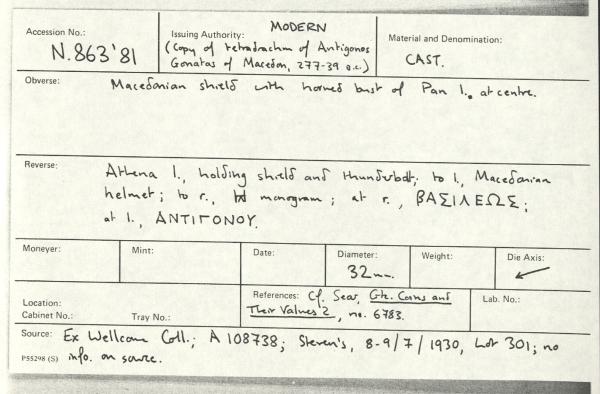 Accession No.:
N.863'81
Issuing Authority:
MODERN
(Copy of tetradrachm of Antigonos
Gonatas of Macedon, 277-39 B.C.)
Material and Denomination:
CAST.
Obverse:
Macedonian shield with horned bust of Pan l., at centre.
Reverse:
Athena l., holding shield and thunderbolt; to l., Macedonian
helmet; to r., monogram; at r., ΒΑΣΙΛΕΩΣ;
at l., ΑΝΤΙΓΟΝΟΥ.
Moneyer:
Mint:
Date:
Diameter:
32mm.
Weight:
Die Axis:
↙
Location:
Cabinet No.:
Tray No.:
References: Cf. Sear, Gk. Coins and
Their Values 2, no. 6783.
Lab. No.:
Source: Ex Wellcome Coll.; A 108738; Steven's, 8-9/7/1930, Lot 301; no
P55298 (S) info. on source.